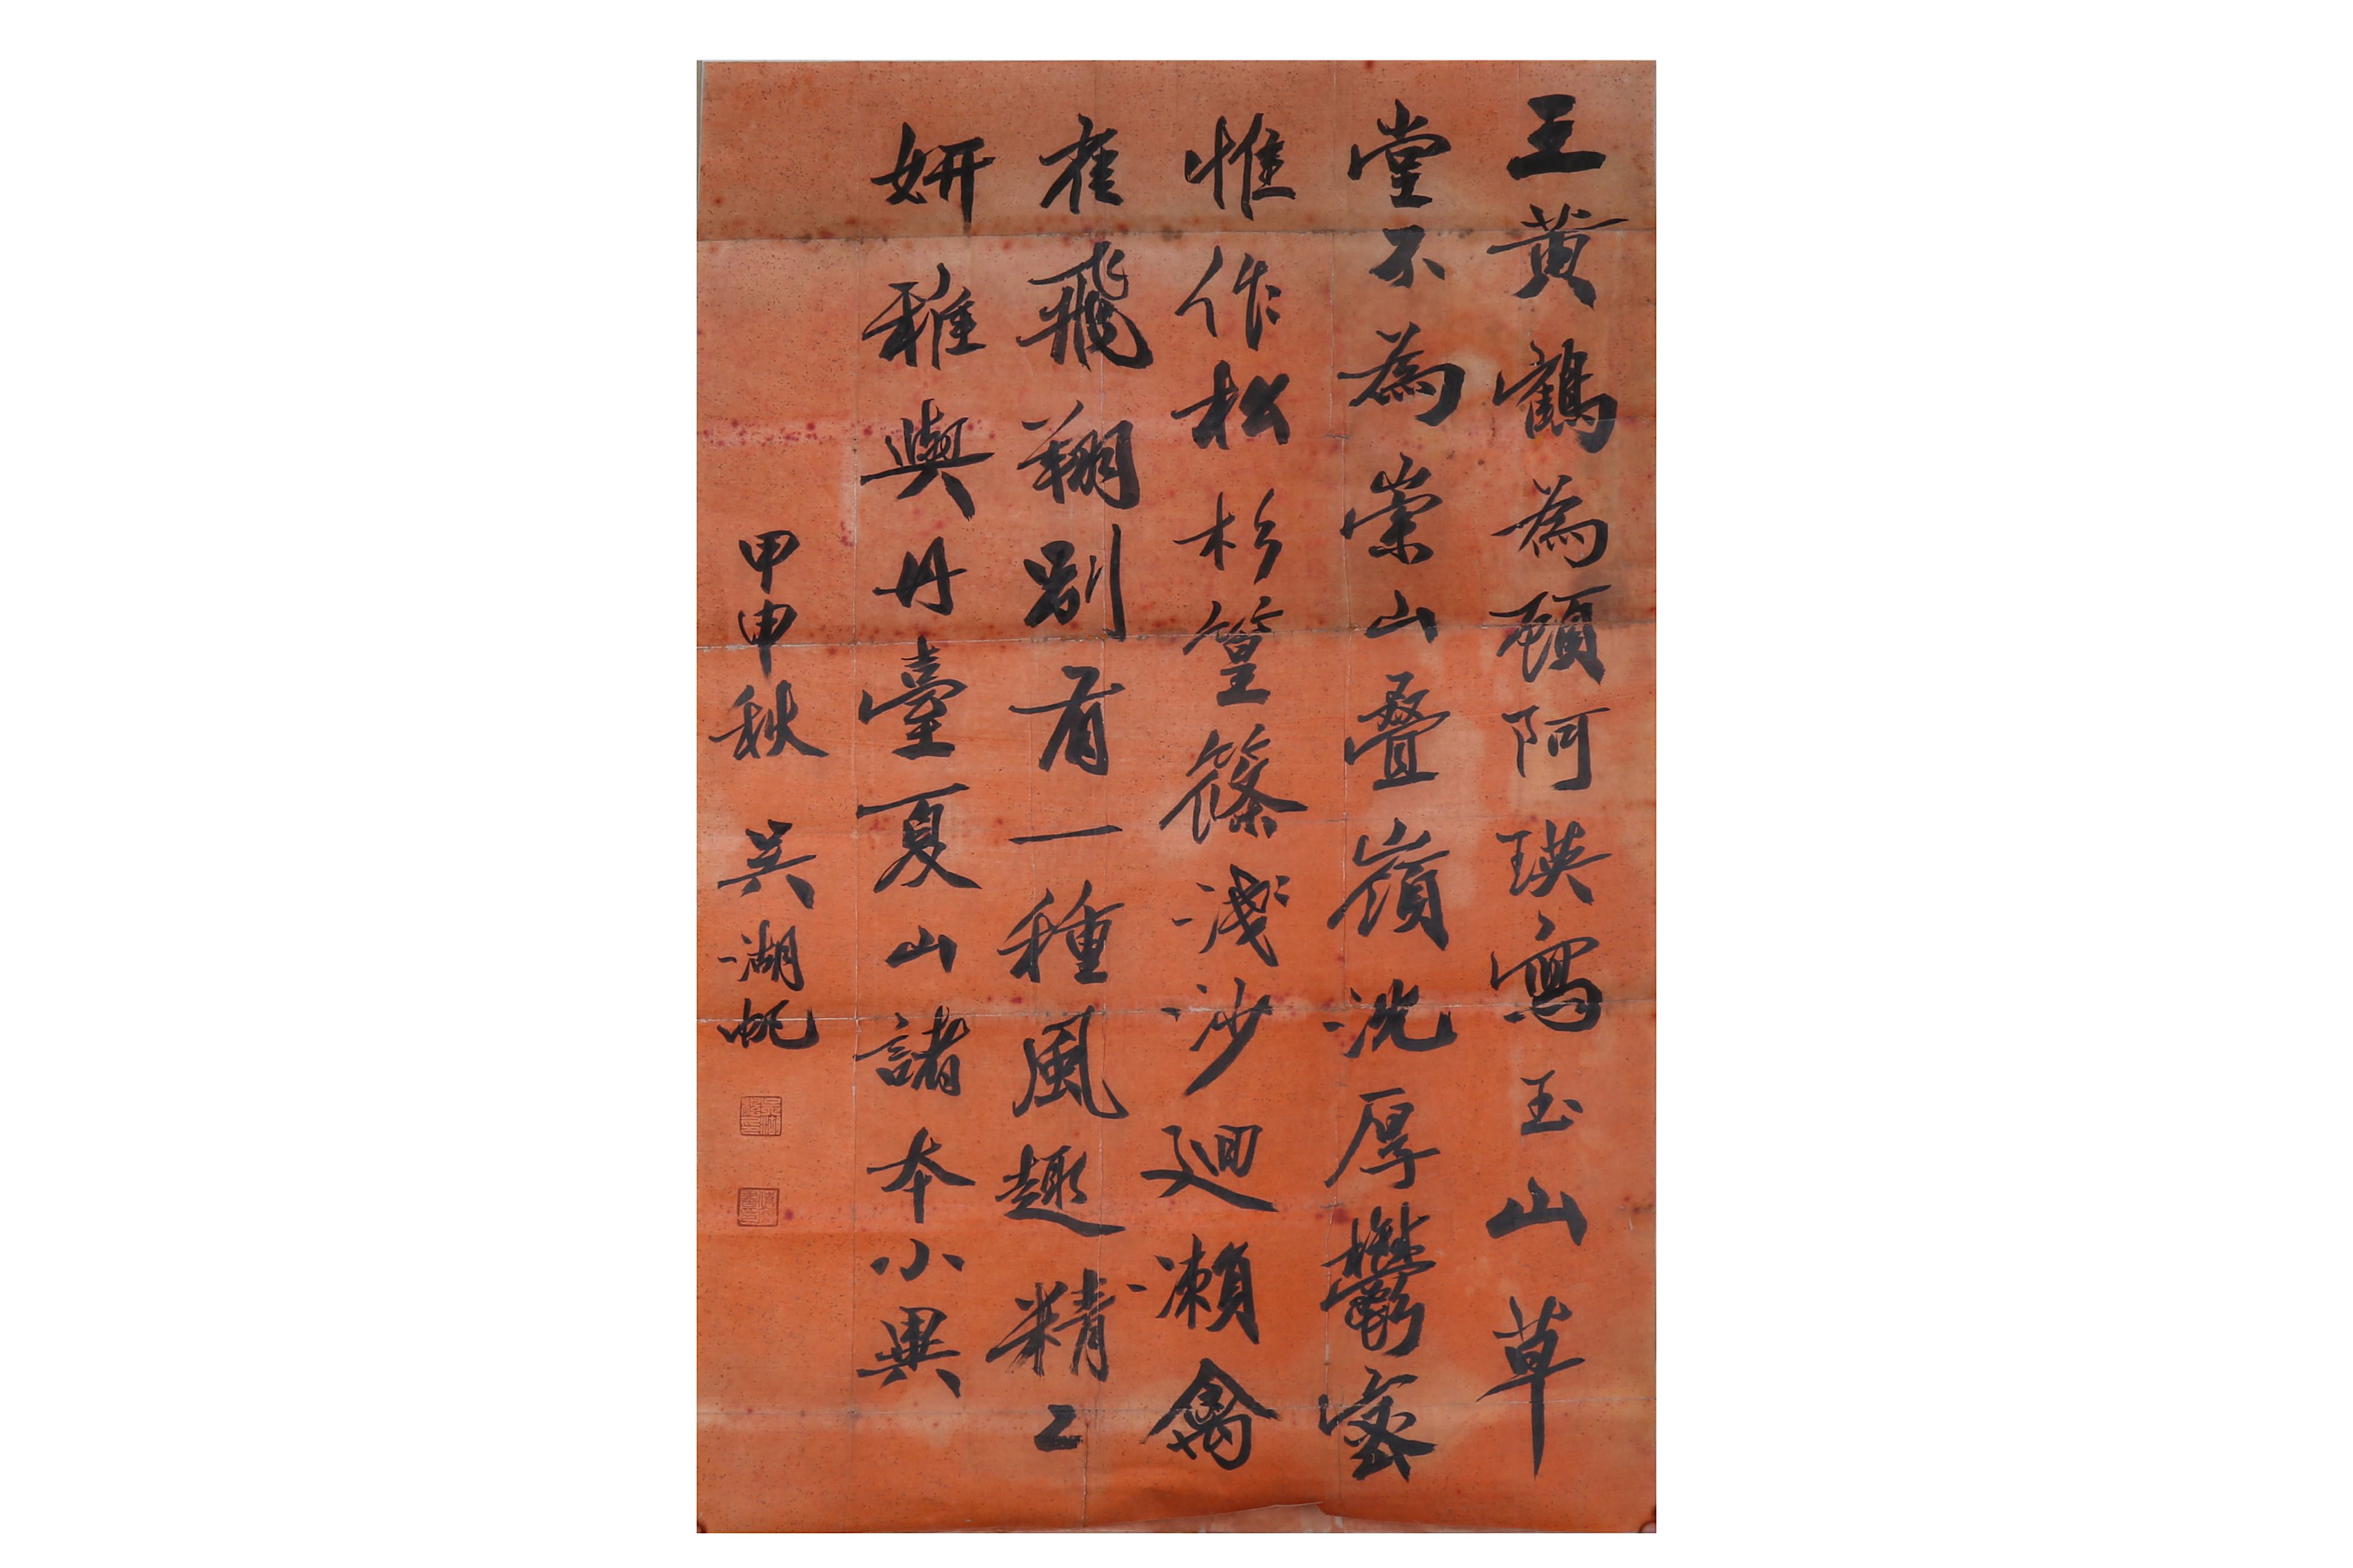 王黄鶴為頋阿瑛寫玉山草
堂不為崇山疊嶺沈厚鬱密
惟作松杉篁篠淺沙迴瀨禽
隺飛翔别有一種風趣精工
妍雅與丹臺夏山諸本小異
甲申秋 吴湖帆